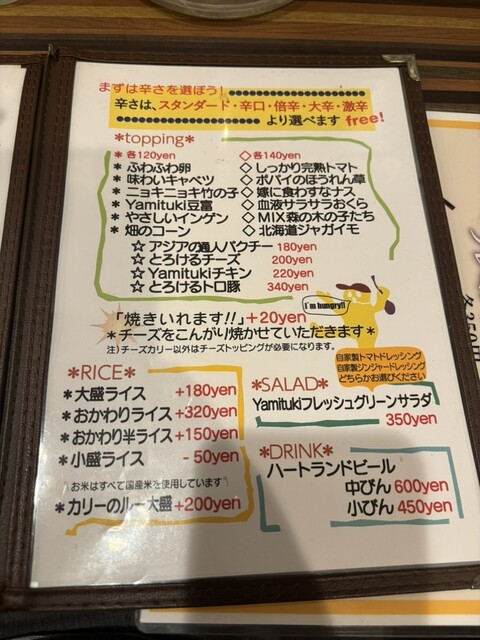 まずは辛さを選ぼう!
辛さは、スタンダード・辛口・倍辛・大辛・激辛
より選べます free!
*topping*
* 各120yen
* ふわふわ卵
* 味わいキャベツ
* ニョキニョキ竹の子
* Yamituki豆富
* やさしいインゲン
* 畑のコーン
◇各140yen
◇しっかり完熟トマト
◇ポパイのほうれん草
◇嫁に食わすなナス
◇血液サラサラおくら
◇MIX森の木の子たち
◇北海道ジャガイモ
☆アジアの通人パクチー 180yen
☆とろけるチーズ 200yen
☆Yamitukiチキン 220yen
☆とろけるトロ豚 340yen
I'm hungry!!
「焼きいれます!!」+20yen
*チーズをこんがり焼かせていただきます*
注)チーズカリー以外はチーズトッピングが必要になります。
自家製トマトドレッシング
自家製ジンジャードレッシング
どちらかお選びください
*RICE*
*大盛ライス +180yen
*おかわりライス+320yen
*おかわり半ライス+150yen
*小盛ライス - 50yen
お米はすべて国産米を使用しています
*カリーのルー大盛+200yen
*SALAD*
Yamitukiフレッシュグリーンサラダ
350yen
*DRINK*
ハートランドビール
中びん 600yen
小びん 450yen